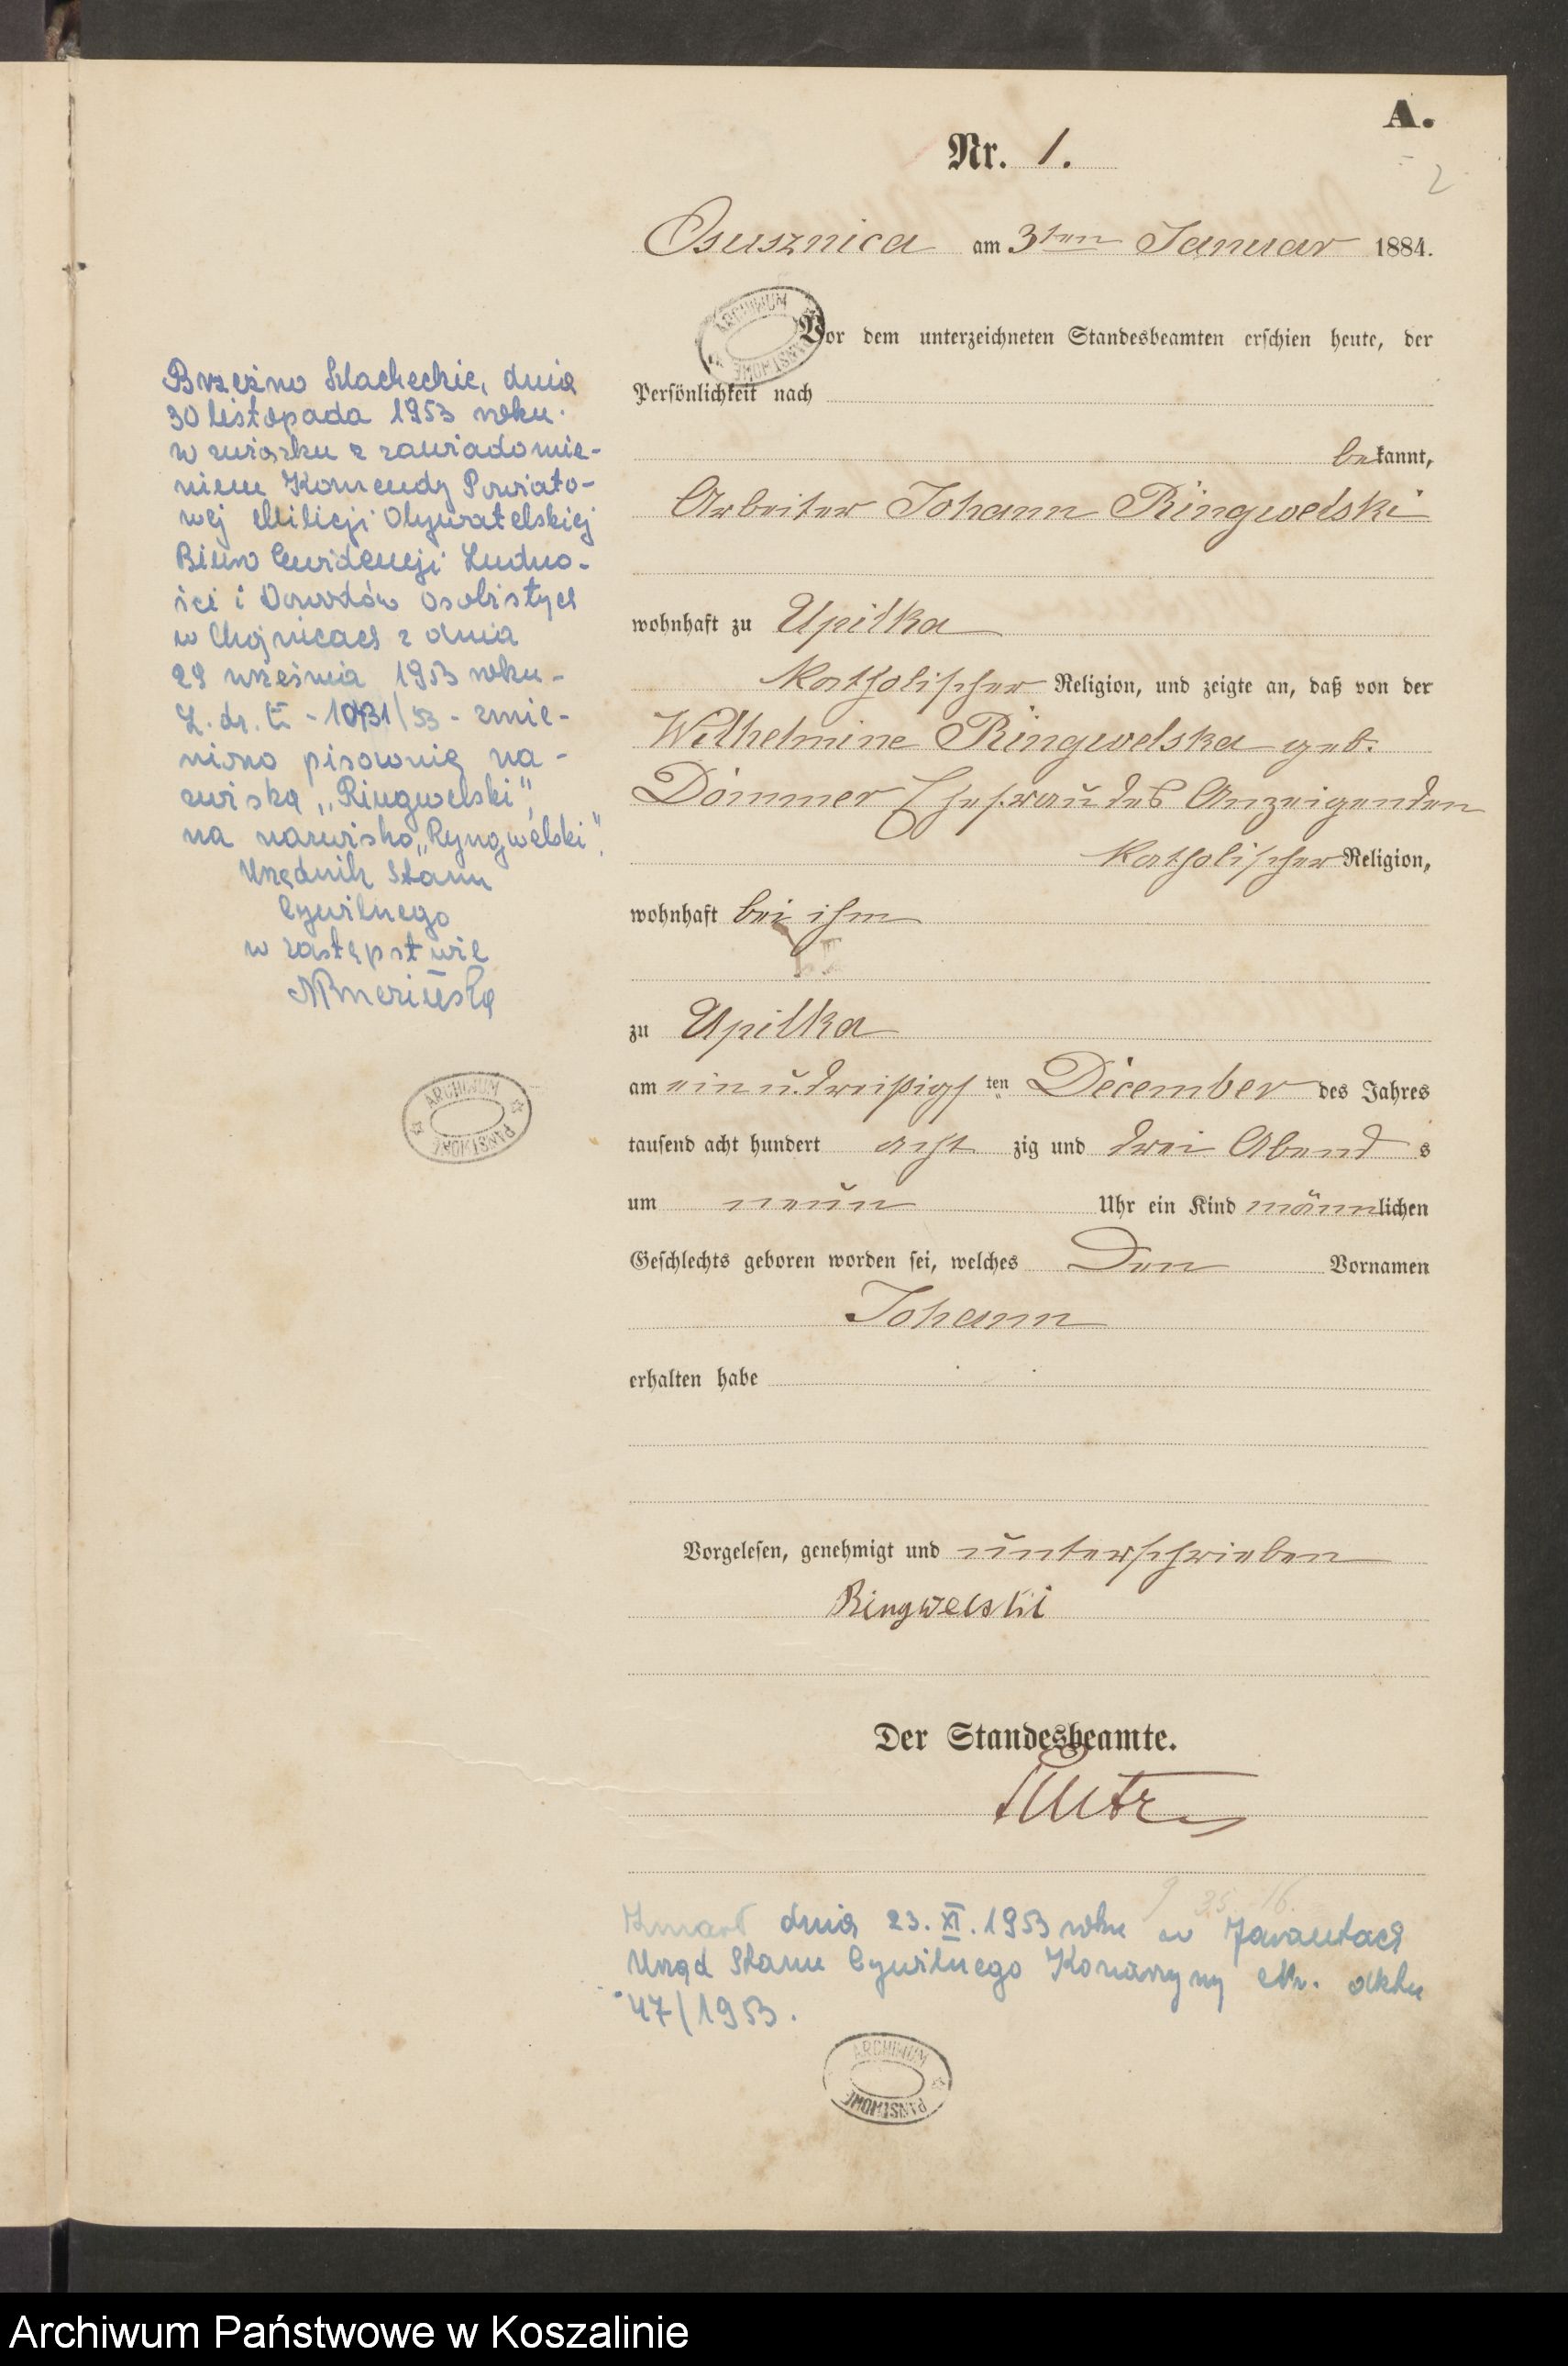 A.
Nr. 1.
2
Osusznica am 3ten Januar 1884.
Vor dem unterzeichneten Standesbeamten erschien heute, der
Persönlichkeit nach
bekannt,
Arbeiter Johann Ringwelski
wohnhaft zu Upilka
katholischer Religion, und zeigte an, daß von der
Wilhelmine Ringwelska geb.
Dömmer Ehefrau des Anzeigenden
katholischer Religion,
wohnhaft bei ihm
zu Upilka
am ein u. dreißigsten December des Jahres
tausend acht hundert acht zig und drei Abends
um neun Uhr ein Kind männlichen
Geschlechts geboren worden sei, welches den Vornamen
Johann
erhalten habe
Vorgelesen, genehmigt und unterschrieben
Ringwelski
Der Standesbeamte.
Zmarł dnia 23. XI. 1953 roku w
Urząd Stanu Cywilnego Konarzyny Nr. aktu
47/1953.
Brzeźno Szlacheckie, dnia
30 listopada 1953 roku.
w związku z zawiadomie-
niem Komendy Powiato-
wej Milicji Obywatelskiej
Biuro Ewidencji Ludno-
ści i Dowodów osobistych
w Chojnicach z dnia
29 września 1953 roku -
L. dz. - 10431/53 - zmie-
niono pisownię na-
zwiska "Ringwelski",
na nazwisko "Ryngwelski".
Urzędnik Stanu
Cywilnego
w zastępstwie
ARCHIWUM PAŃSTWOWE
ARCHIWUM PAŃSTWOWE
ARCHIWUM PAŃSTWOWE
Archiwum Państwowe w Koszalinie